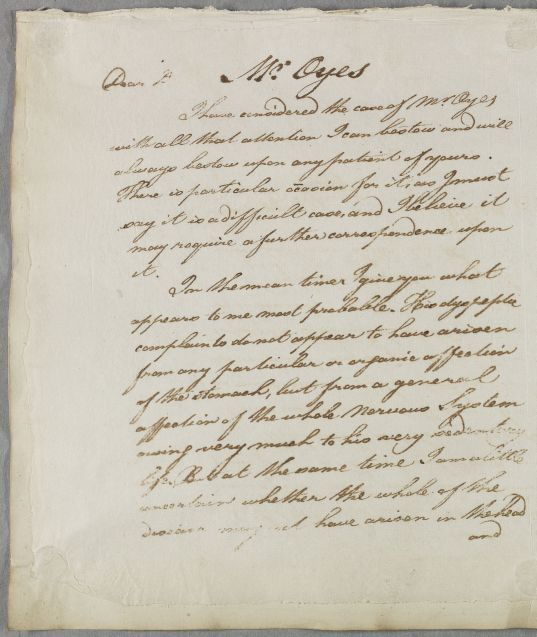 Mr. Oyes
Dear Sr
I have considered the case of Mr Oyes
with all that attention I can bestow and will
always bestow upon any patient of yours.
There is particular occasion for it, as I must
say it is a difficult case, and I believe it
may require a further correspondence upon
it.
In the mean time I give you what
appears to me most probable. His dyspeptic
complaints do not appear to have arisen
from any particular or organic affection
of the stomach, but from a general
affection of the whole Nervous System
owing very much to his very sedentary
life. But at the same time I am a little
uncertain whether the whole of the
disease may not have arisen in the head
and